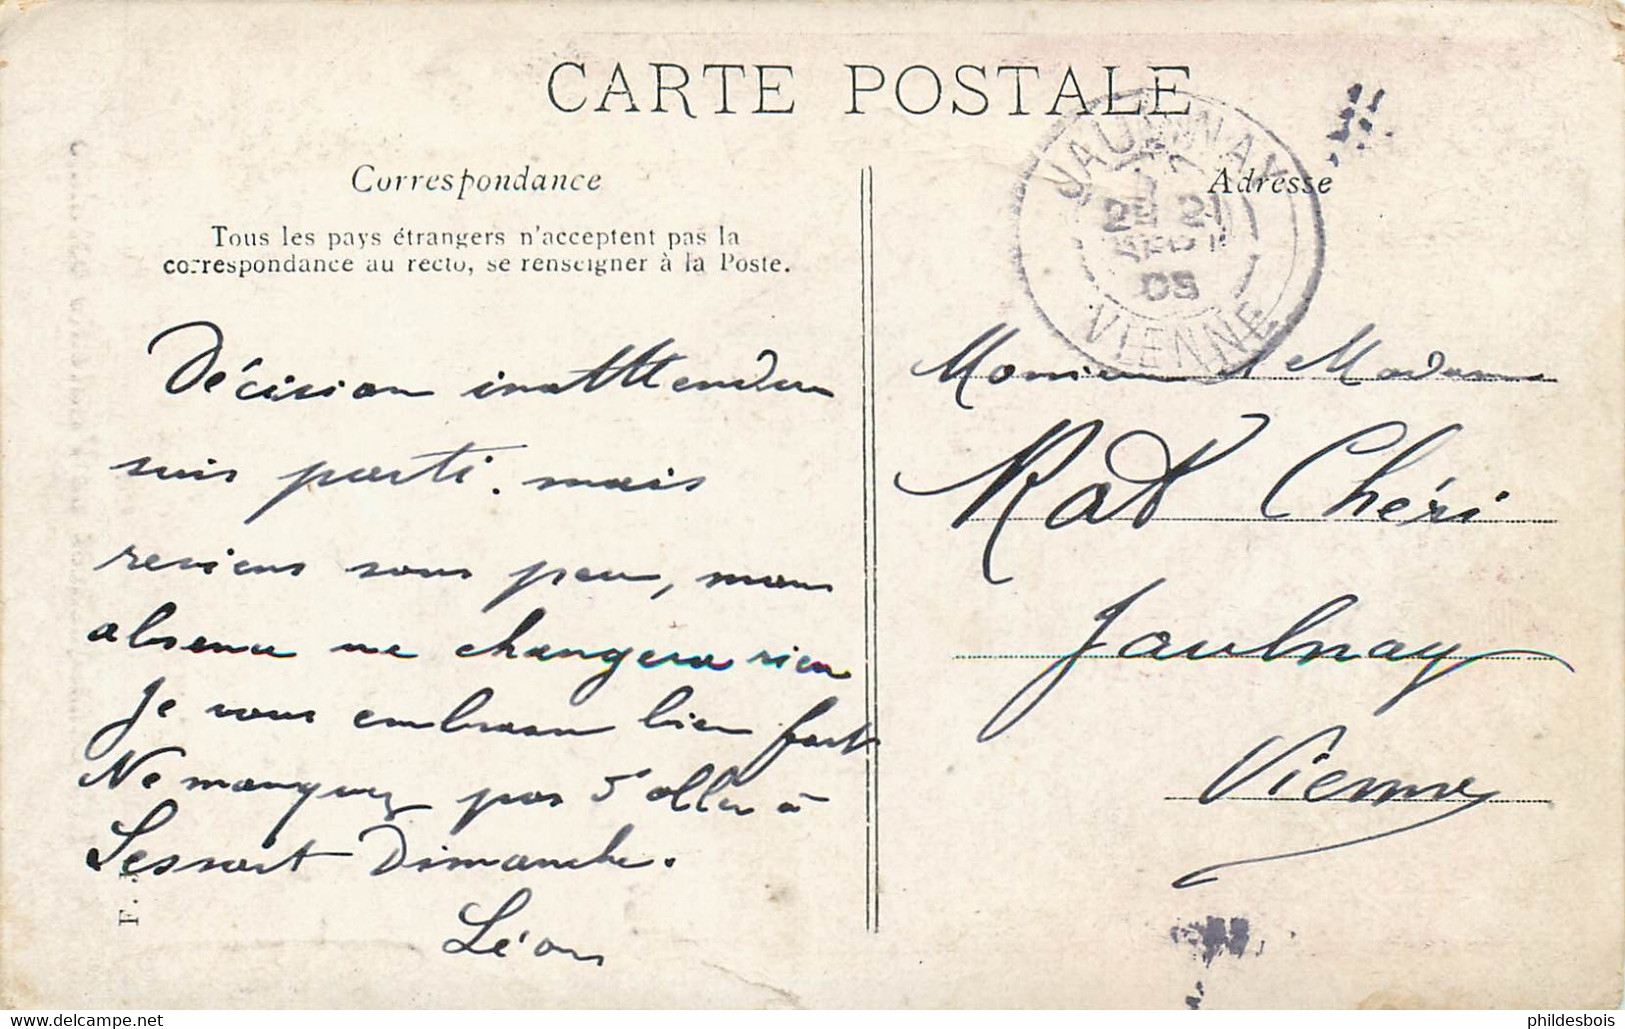 CARTE POSTALE
Correspondance
Tous les pays étrangers n'acceptent pas la
correspondance au recto, se renseigner à la Poste.
Décision inatttendue
suis parti. mais
reviens sous peu, mon
absence ne changera rien
Je vous embrasse bien fort
Ne manquez pas d'aller à
Lessart Dimanche.
Léon
Adresse
JAULNAY
21
SEPT
VIENNE
Monsieur et Madame
Rat Chéri
Jaulnay
Vienne
F.
phildesbois